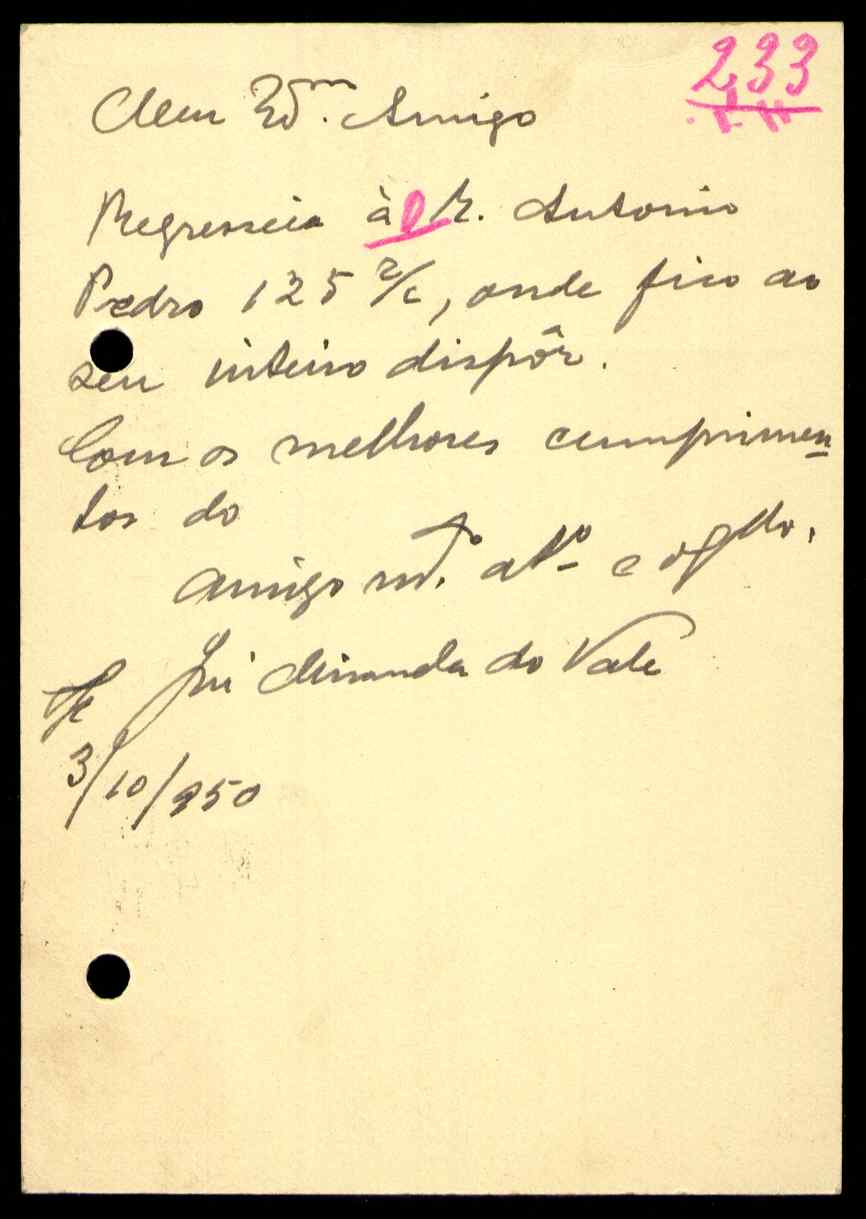 233
Meu Exmo. Amigo
Regressei à R. Antonio
Pedro 125 r/c, onde fico ao
seu inteiro dispôr.
Com os melhores cumprimen
tos do
amigo mto. atto e
José Miranda do Vale
3/10/950